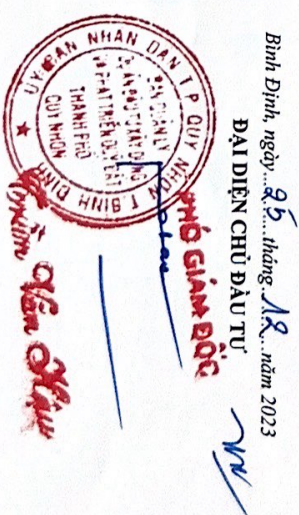 Bình Định, ngày...25....tháng 12...năm 2023
ĐẠI DIỆN CHỦ ĐẦU TƯ
PHÓ GIÁM ĐỐC
ỦY BAN NHÂN DÂN T.P QUY NHƠN T.BÌNH ĐỊNH
BAN QUẢN LÝ
DỰ ÁN ĐẦU TƯ XÂY DỰNG
VÀ PHÁT TRIỂN QUỸ ĐẤT
THÀNH PHỐ
QUY NHƠN